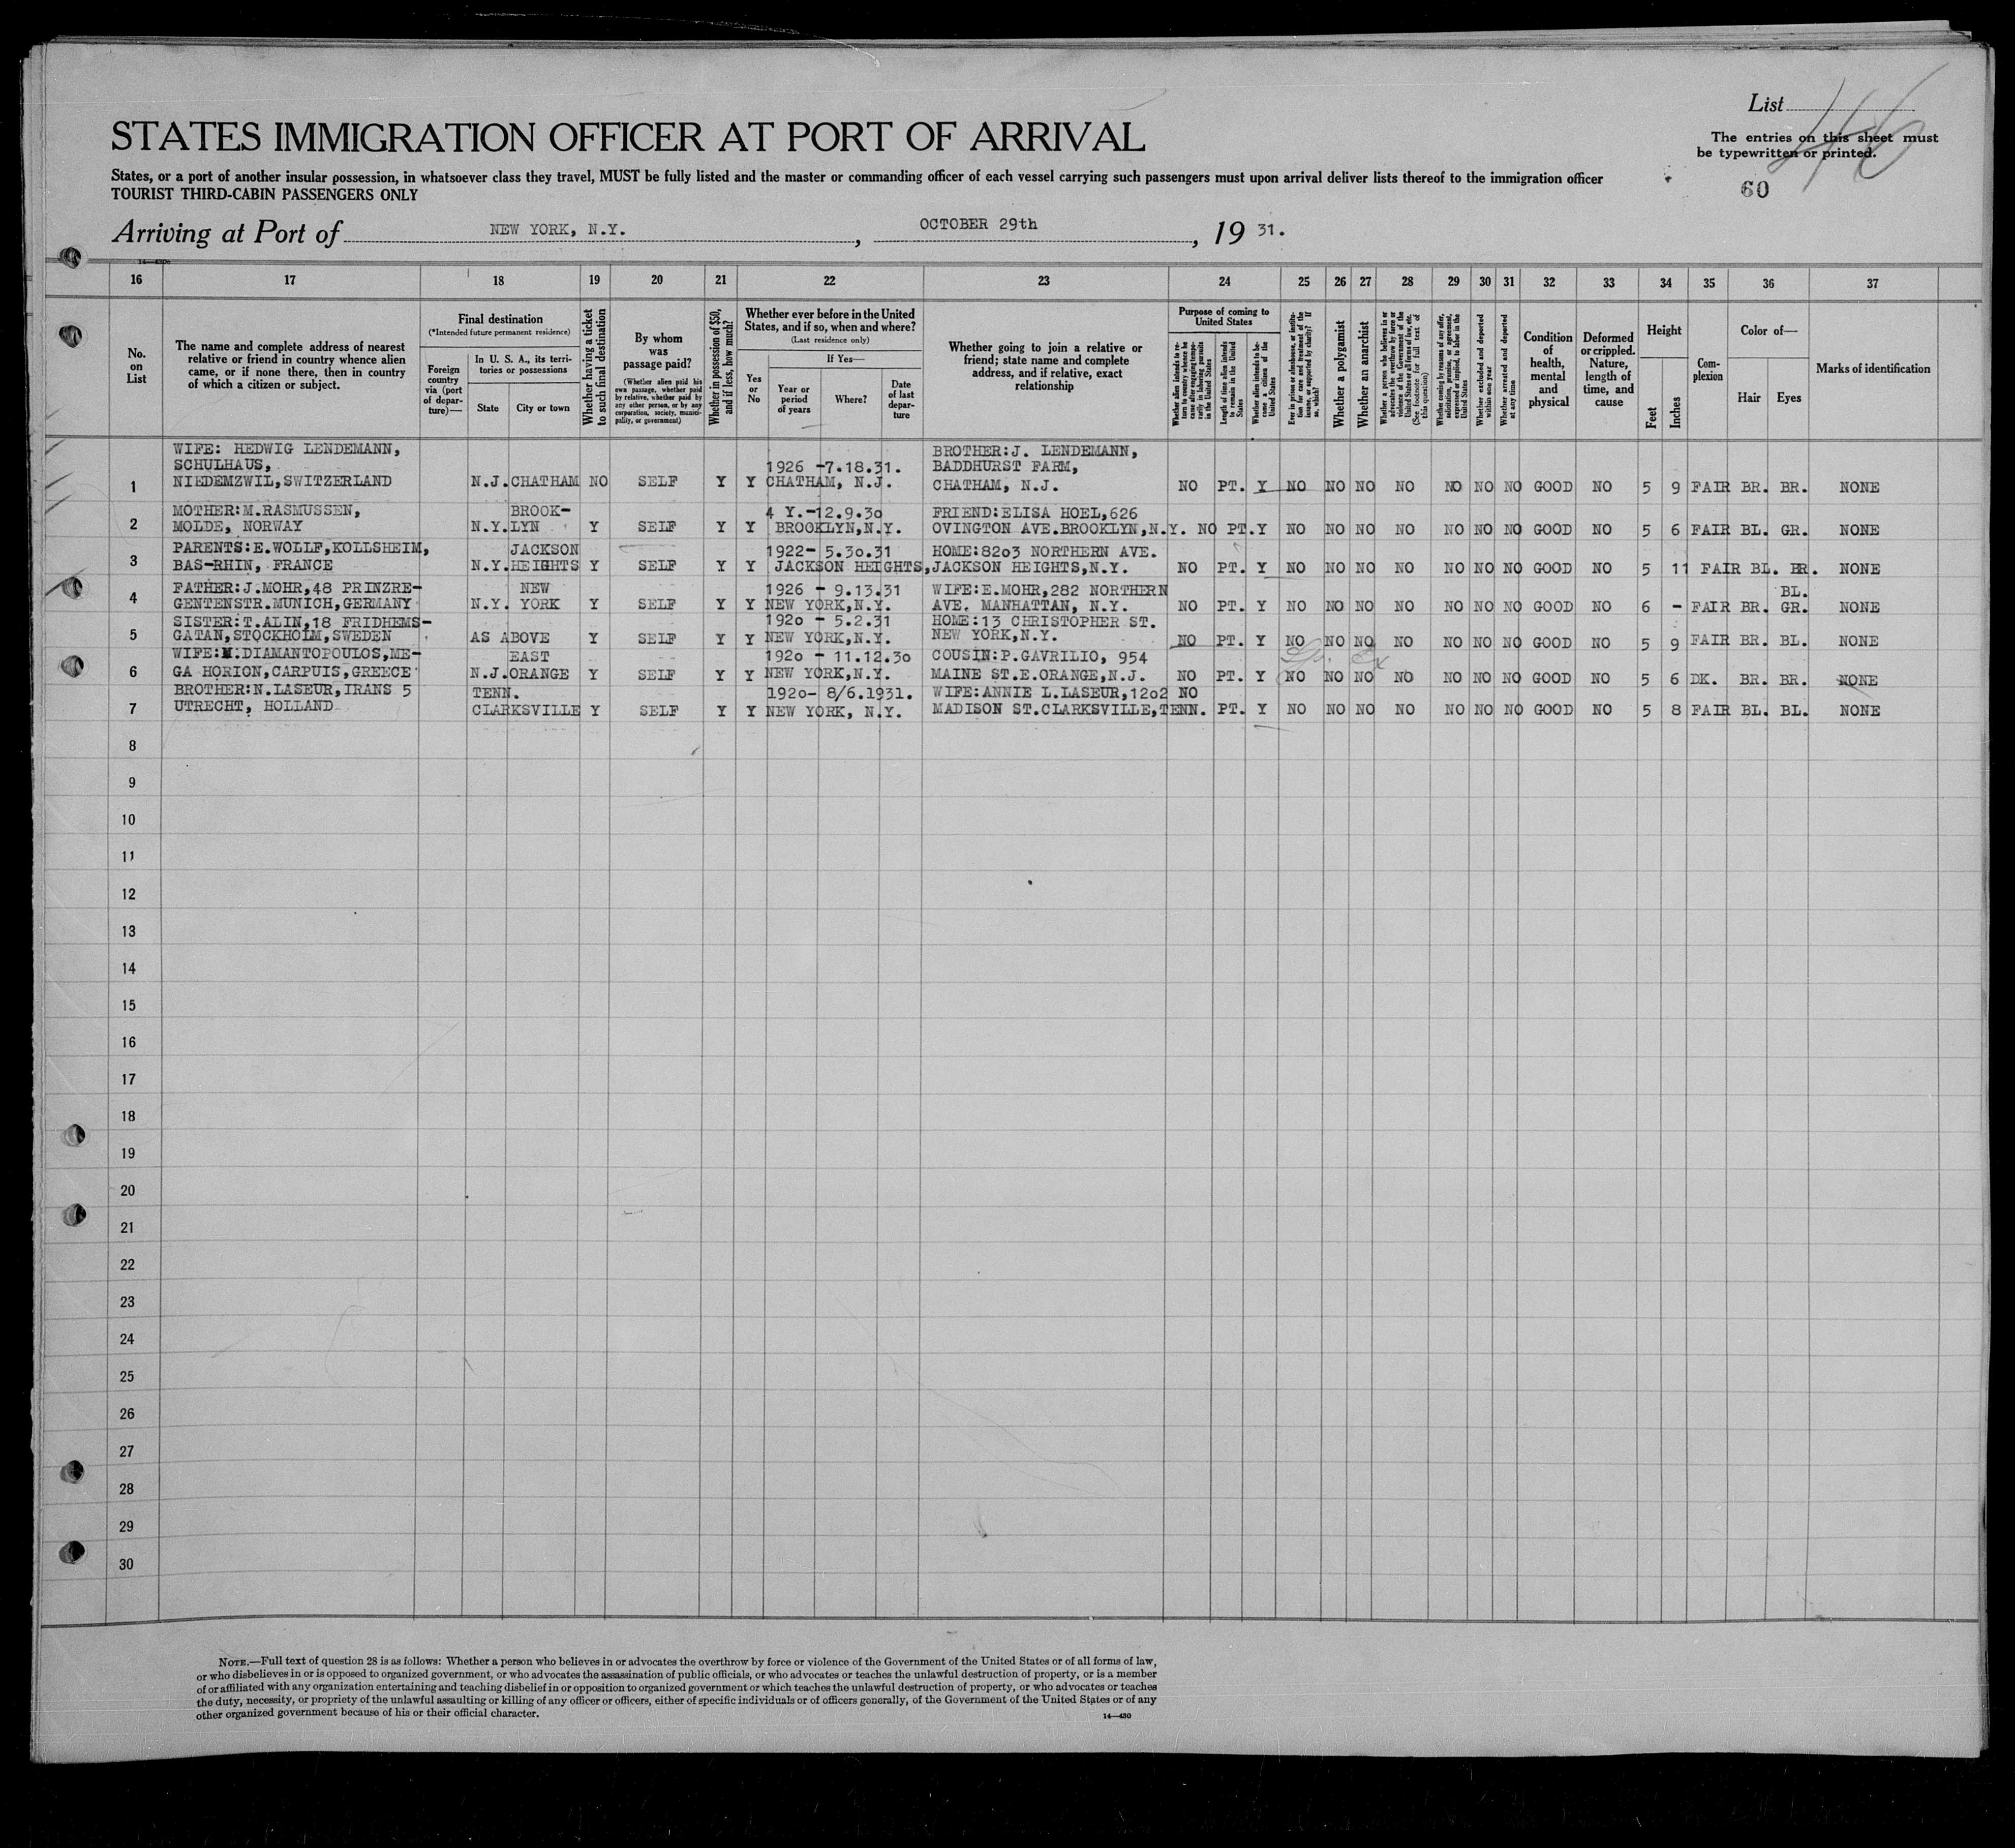 List 46
STATES IMMIGRATION OFFICER AT PORT OF ARRIVAL
The entries on this sheet must
be typewritten or printed.
States, or a port of another insular possession, in whatsoever class they travel, MUST be fully listed and the master or commanding officer of each vessel carrying such passengers must upon arrival deliver lists thereof to the immigration officer
TOURIST THIRD-CABIN PASSENGERS ONLY
60
Arriving at Port of NEW YORK, N.Y. , OCTOBER 29th , 19 31.
16 17 18 19 20 21 22 23 24 25 26 27 28 29 30 31 32 33 34 35 36 37
No. on List
The name and complete address of nearest relative or friend in country whence alien came, or if none there, then in country of which a citizen or subject.
Final destination
(*Intended future permanent residence)
Foreign country via (port of departure)—
In U. S. A., its territories or possessions
State City or town
Whether having a ticket to such final destination
By whom was passage paid?
(Whether alien paid his own passage, whether paid by relative, whether paid by any other person, or by any corporation, society, municipality, or government)
Whether in possession of $50, and if less, how much?
Whether ever before in the United States, and if so, when and where?
(Last residence only)
Yes or No
If Yes—
Year or period of years
Where?
Date of last departure
Whether going to join a relative or friend; state name and complete address, and if relative, exact relationship
Purpose of coming to United States
Whether alien intends to return to country whence he came after engaging temporarily in laboring pursuits in the United States
Length of time alien intends to remain in the United States
Whether alien intends to become a citizen of the United States
Ever in prison or almshouse, or institution for care and treatment of the insane, or supported by charity? If so, which?
Whether a polygamist
Whether an anarchist
Whether a person who believes in or advocates the overthrow by force or violence of the Government of the United States or all forms of law, etc. (See footnote for full text of this question)
Whether coming by reasons of any offer, solicitation, promise, or agreement, expressed or implied, to labor in the United States
Whether excluded and deported within one year
Whether arrested and deported at any time
Condition of health, mental and physical
Deformed or crippled. Nature, length of time, and cause
Height
Feet Inches
Complexion
Color of—
Hair Eyes
Marks of identification
1 WIFE: HEDWIG LENDEMANN, SCHULHAUS, NIEDEMZWIL,SWITZERLAND N.J. CHATHAM NO SELF Y Y 1926 -7.18.31. CHATHAM, N.J. BROTHER:J. LENDEMANN, BADDHURST FARM, CHATHAM, N.J. NO PT. Y NO NO NO NO NO NO NO GOOD NO 5 9 FAIR BR. BR. NONE
2 MOTHER:M.RASMUSSEN, MOLDE, NORWAY N.Y. BROOK-LYN Y SELF Y Y 4 Y.-12.9.30 BROOKLYN,N.Y. FRIEND:ELISA HOEL,626 OVINGTON AVE.BROOKLYN,N.Y. NO PT.Y NO NO NO NO NO NO NO GOOD NO 5 6 FAIR BL. GR. NONE
3 PARENTS:E.WOLLF,KOLLSHEIM, BAS-RHIN, FRANCE N.Y. JACKSON HEIGHTS Y SELF Y Y 1922- 5.30.31 JACKSON HEIGHTS, HOME:8203 NORTHERN AVE. JACKSON HEIGHTS,N.Y. NO PT. Y NO NO NO NO NO NO NO GOOD NO 5 11 FAIR BL. BR. NONE
4 FATHER:J.MOHR,48 PRINZRE-GENTENSTR.MUNICH,GERMANY N.Y. NEW YORK Y SELF Y Y 1926 - 9.13.31 NEW YORK,N.Y. WIFE:E.MOHR,282 NORTHERN AVE. MANHATTAN, N.Y. NO PT. Y NO NO NO NO NO NO NO GOOD NO 6 - FAIR BR. BL. GR. NONE
5 SISTER:T.ALIN,18 FRIDHEMS-GATAN,STOCKHOLM,SWEDEN AS ABOVE Y SELF Y Y 1920 - 5.2.31 NEW YORK,N.Y. HOME:13 CHRISTOPHER ST. NEW YORK,N.Y. NO PT. Y NO NO NO NO NO NO NO GOOD NO 5 9 FAIR BR. BL. NONE
6 WIFE:M.DIAMANTOPOULOS,ME-GA HORION,CARPUIS,GREECE N.J. EAST ORANGE Y SELF Y Y 1920 - 11.12.30 NEW YORK,N.Y. COUSIN:P.GAVRILIO, 954 MAINE ST.E.ORANGE,N.J. NO PT. Y NO NO NO NO NO NO NO GOOD NO 5 6 DK. BR. BR. NONE
7 BROTHER:N.LASEUR,IRANS 5 UTRECHT, HOLLAND TENN. CLARKSVILLE Y SELF Y Y 1920- 8/6.1931. NEW YORK, N.Y. WIFE:ANNIE L.LASEUR,1202 MADISON ST.CLARKSVILLE,TENN. NO PT. Y NO NO NO NO NO NO NO GOOD NO 5 8 FAIR BL. BL. NONE
8
9
10
11
12
13
14
15
16
17
18
19
20
21
22
23
24
25
26
27
28
29
30
NOTE.—Full text of question 28 is as follows: Whether a person who believes in or advocates the overthrow by force or violence of the Government of the United States or of all forms of law,
or who disbelieves in or is opposed to organized government, or who advocates the assassination of public officials, or who advocates or teaches the unlawful destruction of property, or is a member
of or affiliated with any organization entertaining and teaching disbelief in or opposition to organized government or which teaches the unlawful destruction of property, or who advocates or teaches
the duty, necessity, or propriety of the unlawful assaulting or killing of any officer or officers, either of specific individuals or of officers generally, of the Government of the United States or of any
other organized government because of his or their official character.
14—430